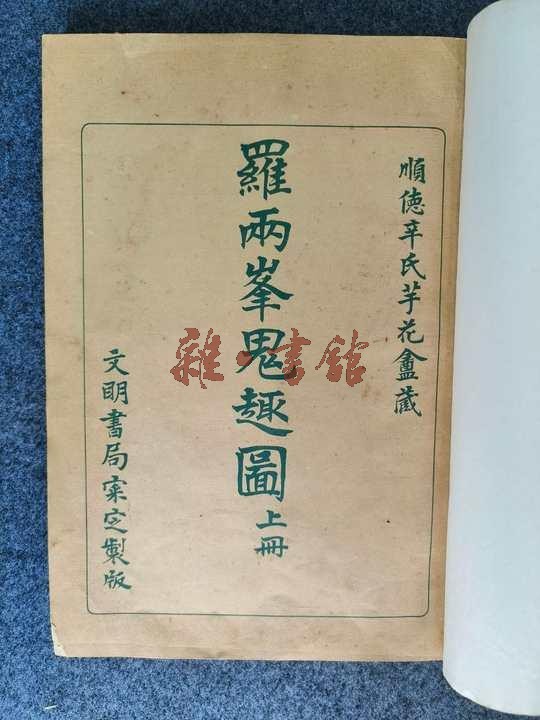 順德辛氏芋花盦藏
羅兩峯鬼趣圖 上冊
文明書局寀定製版
雜·書館